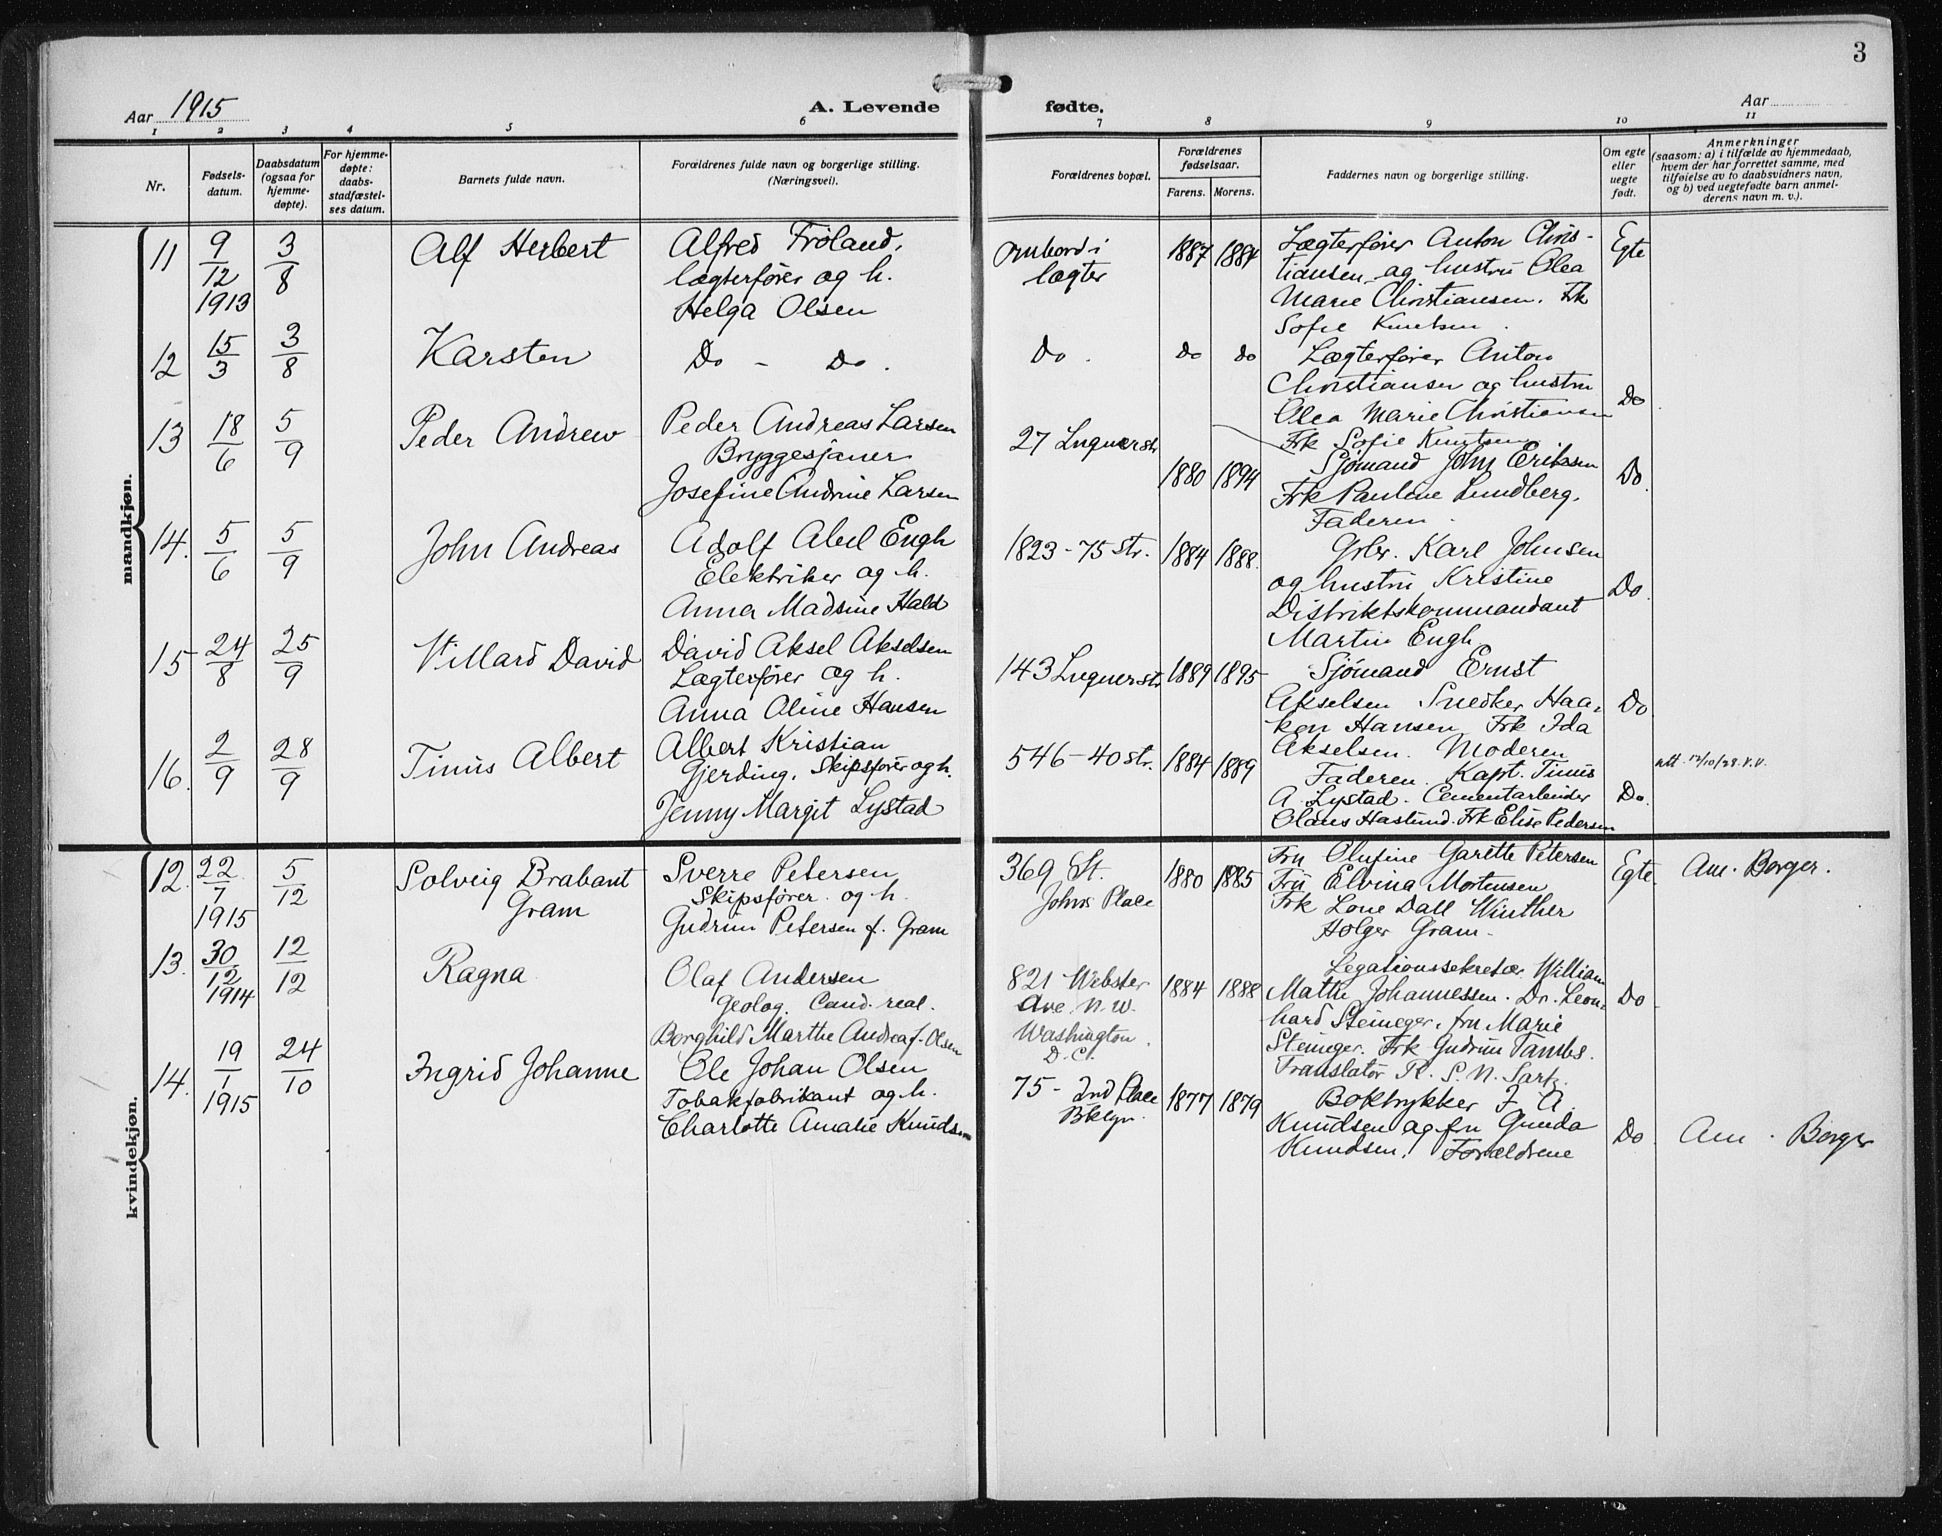 3
Aar 1915
A. Levende fødte.
Aar
1 2 3 4 5 6 7 8 9 10 11
Nr.
Fødsels-
datum.
Daabsdatum
(ogsaa for
hjemme-
døpte).
For hjemme-
døpte:
daabs-
stadfæstel-
ses datum.
Barnets fulde navn.
Forældrenes fulde navn og borgerlige stilling.
(Næringsvei).
Forældrenes bopæl.
Forældrenes
fødselsaar.
Farens. Morens.
Faddernes navn og borgerlige stilling.
Om egte
eller
uegte
født.
Anmerkninger
(saasom: a) i tilfælde av hjemmedaab,
hvem der har forrettet samme, med
tilføielse av to daabsvidners navn,
og b) ved uegtefødte barn anmel-
derens navn m. v.).
mandkjøn.
11 9/12 1913 3/8 Alf Herbert
Alfred Frøland,
lægterfører og h.
Helga Olsen
ombord i
lægter
1887 1884
Lægterfører Anton Chris-
tiansen og hustru Olea
Marie Christiansen. Frk
Sofie Knutsen.
Egte
12 15/3 3/8 Karsten
Do - Do.
Do. Do Do
Lægterfører Anton
Christiansen og hustru
Olea Marie Christiansen
Frk Sofie Knutsen
Do
13 18/6 5/9 Peder Andrew
Peder Andreas Larsen
Bryggesjauer
Josefine Andrine Larsen
27 Luquerstr
1880 1894
Sjømand John Eriksen
Frk Pauline Lundberg.
Faderen.
Do.
14. 5/6 5/9 John Andreas
Adolf Abel Engh
Elektriker og h.
Anna Madsine Hald
1823-75 Str. 1884 1888.
Karl Johnsen
og hustru Kristine
Distriktskommandant
Martin Engh
Do.
15 24/8 25/9 Villard David
David Aksel Akselsen
Lægterfører og h.
Anna Oline Hansen
143 Luquerstr 1889 1895
Sjømand Ernst
Akselsen Snedker Haa-
kon Hansen Frk Ida
Akselsen. Moderen
Do
16. 2/9 28/9 Tinius Albert
Albert Kristian
Gjerding. Skipsfører og h.
Jenny Margit Lystad
546-40 str. 1884 1889
Faderen. Kapt. Tinius
A. Lystad. Cementarbeider
Olaus Haslund. Frk Elise Pedersen
Do.
att. 12/10/28. V.V.
kvindekjøn.
12. 22/7 1915 5/12 Solveig Brabant
Gram
Sverre Petersen
Skipsfører og h.
Gudrun Petersen f. Gram
369 St.
Johns Place
1880 1885
Fru Olufine Garitte Petersen
Fru Elvina Mortensen
Frk Lone Dall Winther
Holger Gram-
Egte.
Am. Borger.
13. 30/12 1914 12/12 Ragna
Olaf Andersen
Geolog. Cand. real.
Borghild Marthe Andrea f. Olsen
821 Webster
Ave. N.W.
Washington
D.C.
1884 1888
Legationssekretær William
Mathe Johannessen. Dr. Leon-
hard Steineger, fru Marie
Steineger. Frk Gudrun Tambs.
Translatør R. S. N. Sartz.
Do
14. 19/1 1915 24/10 Ingrid Johanne
Ole Johan Olsen
Tobakfabrikant og h.
Charlotte Amalie Knudsen
75 - 2nd Place
Bklyn.
1877 1879
Boktrykker F. A.
Knudsen og fru Gunda
Knudsen. Forældrene
Do
Am. Borger